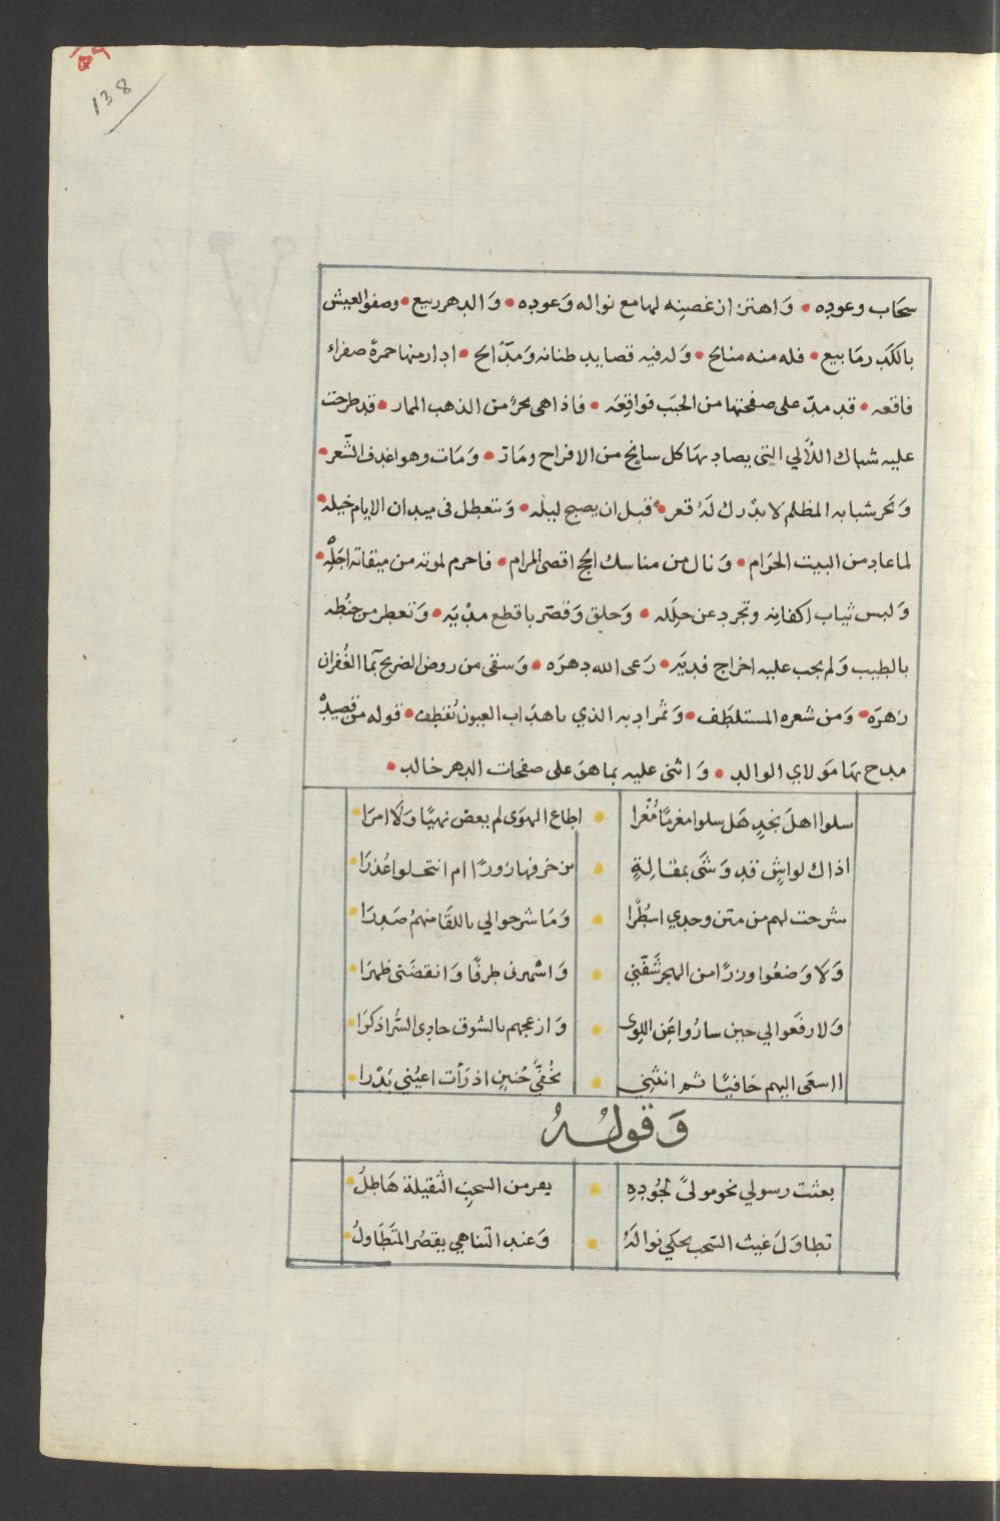 138
سحَاب وعوده • وَاهتزاز غصنِه لهامع نواله وَعوده • وَالدهر ربيع • وصفو العيش
بالكَدَر مَا بيع • فله منه منائح • وَله فيه قصايد طنانه وَمدَائح • ادار منها حمرة صفراء
فاقعه • قد مدّ على صفحتها من الحبَب فواقِعَه • فاذا هى بحرٌ من الذهب المار • قد طرحت
عليه شباك اللآلي التى يصاد بهَا كل سانح من الافراح ومَارّ • وَمَات وهو اغدف الشَّعر •
وَبحر شبابه المظلم لا يدْرك لَهُ قعر • قبل ان يصبح ليله • وَتتعطل فى ميدان الايام خيله •
لما عاد من البيت الحرَام • وَنال من مناسك الحج اقصى المرام • فاحرم لموته من ميقاته اجَلِه •
وَلبس ثياب اكفانِه وتجرد عن حلِلَه • وَحلق وَقصّر باقطع مدْيَه • وَتعطر من حنُطِه
بالطيب وَلم يجب عليه اخراج فديَه • رَعى الله دهرَه • وَسقى من روض الضريح بمَا الغُفران
زهرَه • وَمن شعره المستلطَف • وَثمر ادبه الذي باهدَاب العيون تُقطف • قوله من قصيدةْ
مدح بهَا مَولاي الوالد • وَاثنى عليه بما هوَ على صفحات الدهر خالد •
سلوا اهلَ نجدٍ هَل سلوا مغرمًا مُغْرا • اطاع الهوَى لم يعصْ نهيًا وَلَا امرَا •
اذاك لواشٍ قد وَشَى بمقالةٍ • مزخرفها زورًا ام انتحلوا عُذرَا •
شرحت لهم من متن وجدي اسُطرًا • وَمَا شرحوا لي باللقَا منهمُ صَدرَا •
وَلا وَضعُوا وزرًا من الهجر شَفّني • وَاشهرنى طرفًا وَانقضَنى ظهرَا •
وَلا رفَعوا لي حين سارُوا عَن اللِوى • وَازعجهم بالشوق حادِى السُّرا ذكرَا •
ااسعَى اليهم حَافيًا ثم انثنِي • بخُفَّي حُنينٍ اذ رَأت اعيُني بَدْرا •
وَقولُهُ
بعثت رسولي نحو مولىً لجُودِهِ • يفر من السحبِ الثقيلة هَاطلُ •
تطاوَلَ غيث السّحب يحكي نوالَهُ • وَعند التناهي يقصُر المتَطَاولُ •